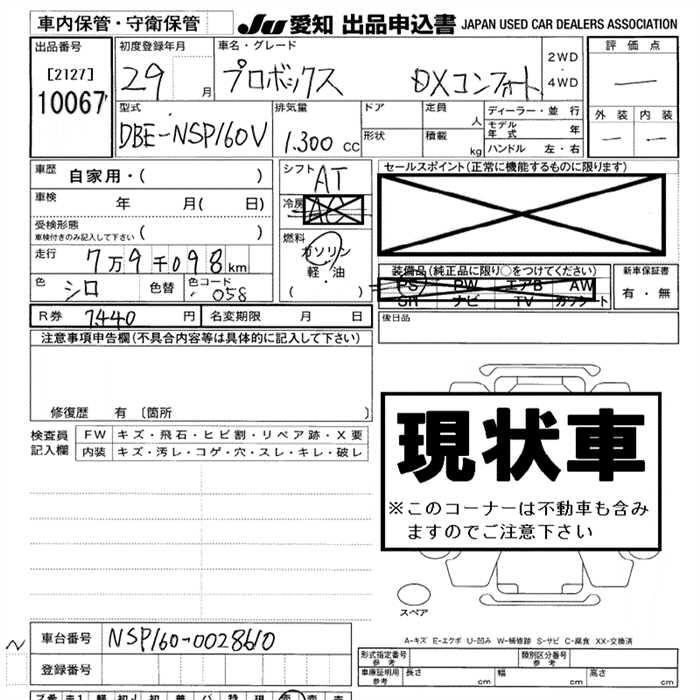 車内保管・守衛保管
JU 愛知 出品申込書 JAPAN USED CAR DEALERS ASSOCIATION
出品番号 [2127] 10067
初度登録年月 29 月
車名・グレード プロボックス DXコンフォート 2WD ・ 4WD
評価点 —
外装 — 内装 —
型式 DBE-NSP160V
排気量 1.300 cc
ドア 形状
定員 人
積載 kg
ディーラー・並行
モデル年式 年
ハンドル 左・右
車歴 自家用・( )
車検 年 月( 日)
受検形態 車検付きのみ記入して下さい ( )
走行 7万9千098km
色 シロ 色替 色コード 058
シフト AT
冷房 AC
燃料 ガソリン 軽・油 ( )
セールスポイント(正常に機能するものに限ります)
装備品(純正品に限り○をつけてください)
PS PW エアB AW
SR ナビ TV カワシート
新車保証書 有・無
R券 7,440 円 名変期限 月 日
後日品
注意事項申告欄(不具合内容等は具体的に記入して下さい)
修復歴 有 [箇所 ]
検査員記入欄
FW キズ・飛石・ヒビ割・リペア跡・X要
内装 キズ・汚レ・コゲ・穴・スレ・キレ・破レ
現状車
※このコーナーは不動車も含み
ますのでご注意下さい
スペア
A-キズ E-エクボ U-凹み W-補修跡 S-サビ C-腐食 XX-交換済
車台番号 NSP160-0028610
登録番号
形式指定番号 参考 類別区分番号 参考
車庫証明用 参考 長さ cm 幅 cm 高さ cm